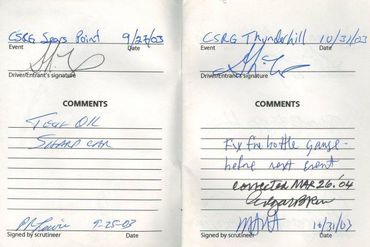 CSRG Sears Point 9/27/03
Event Date
Driver/Entrant's signature
COMMENTS
TECH OIL
SHARP CAR
9-25-03
Signed by scrutineer Date
CSRG Thunderhill 10/31/03
Event Date
Driver/Entrant's signature
COMMENTS
Fix fire bottle gauge -
before next event
corrected MAR 26. '04
10/31/03
Signed by scrutineer Date